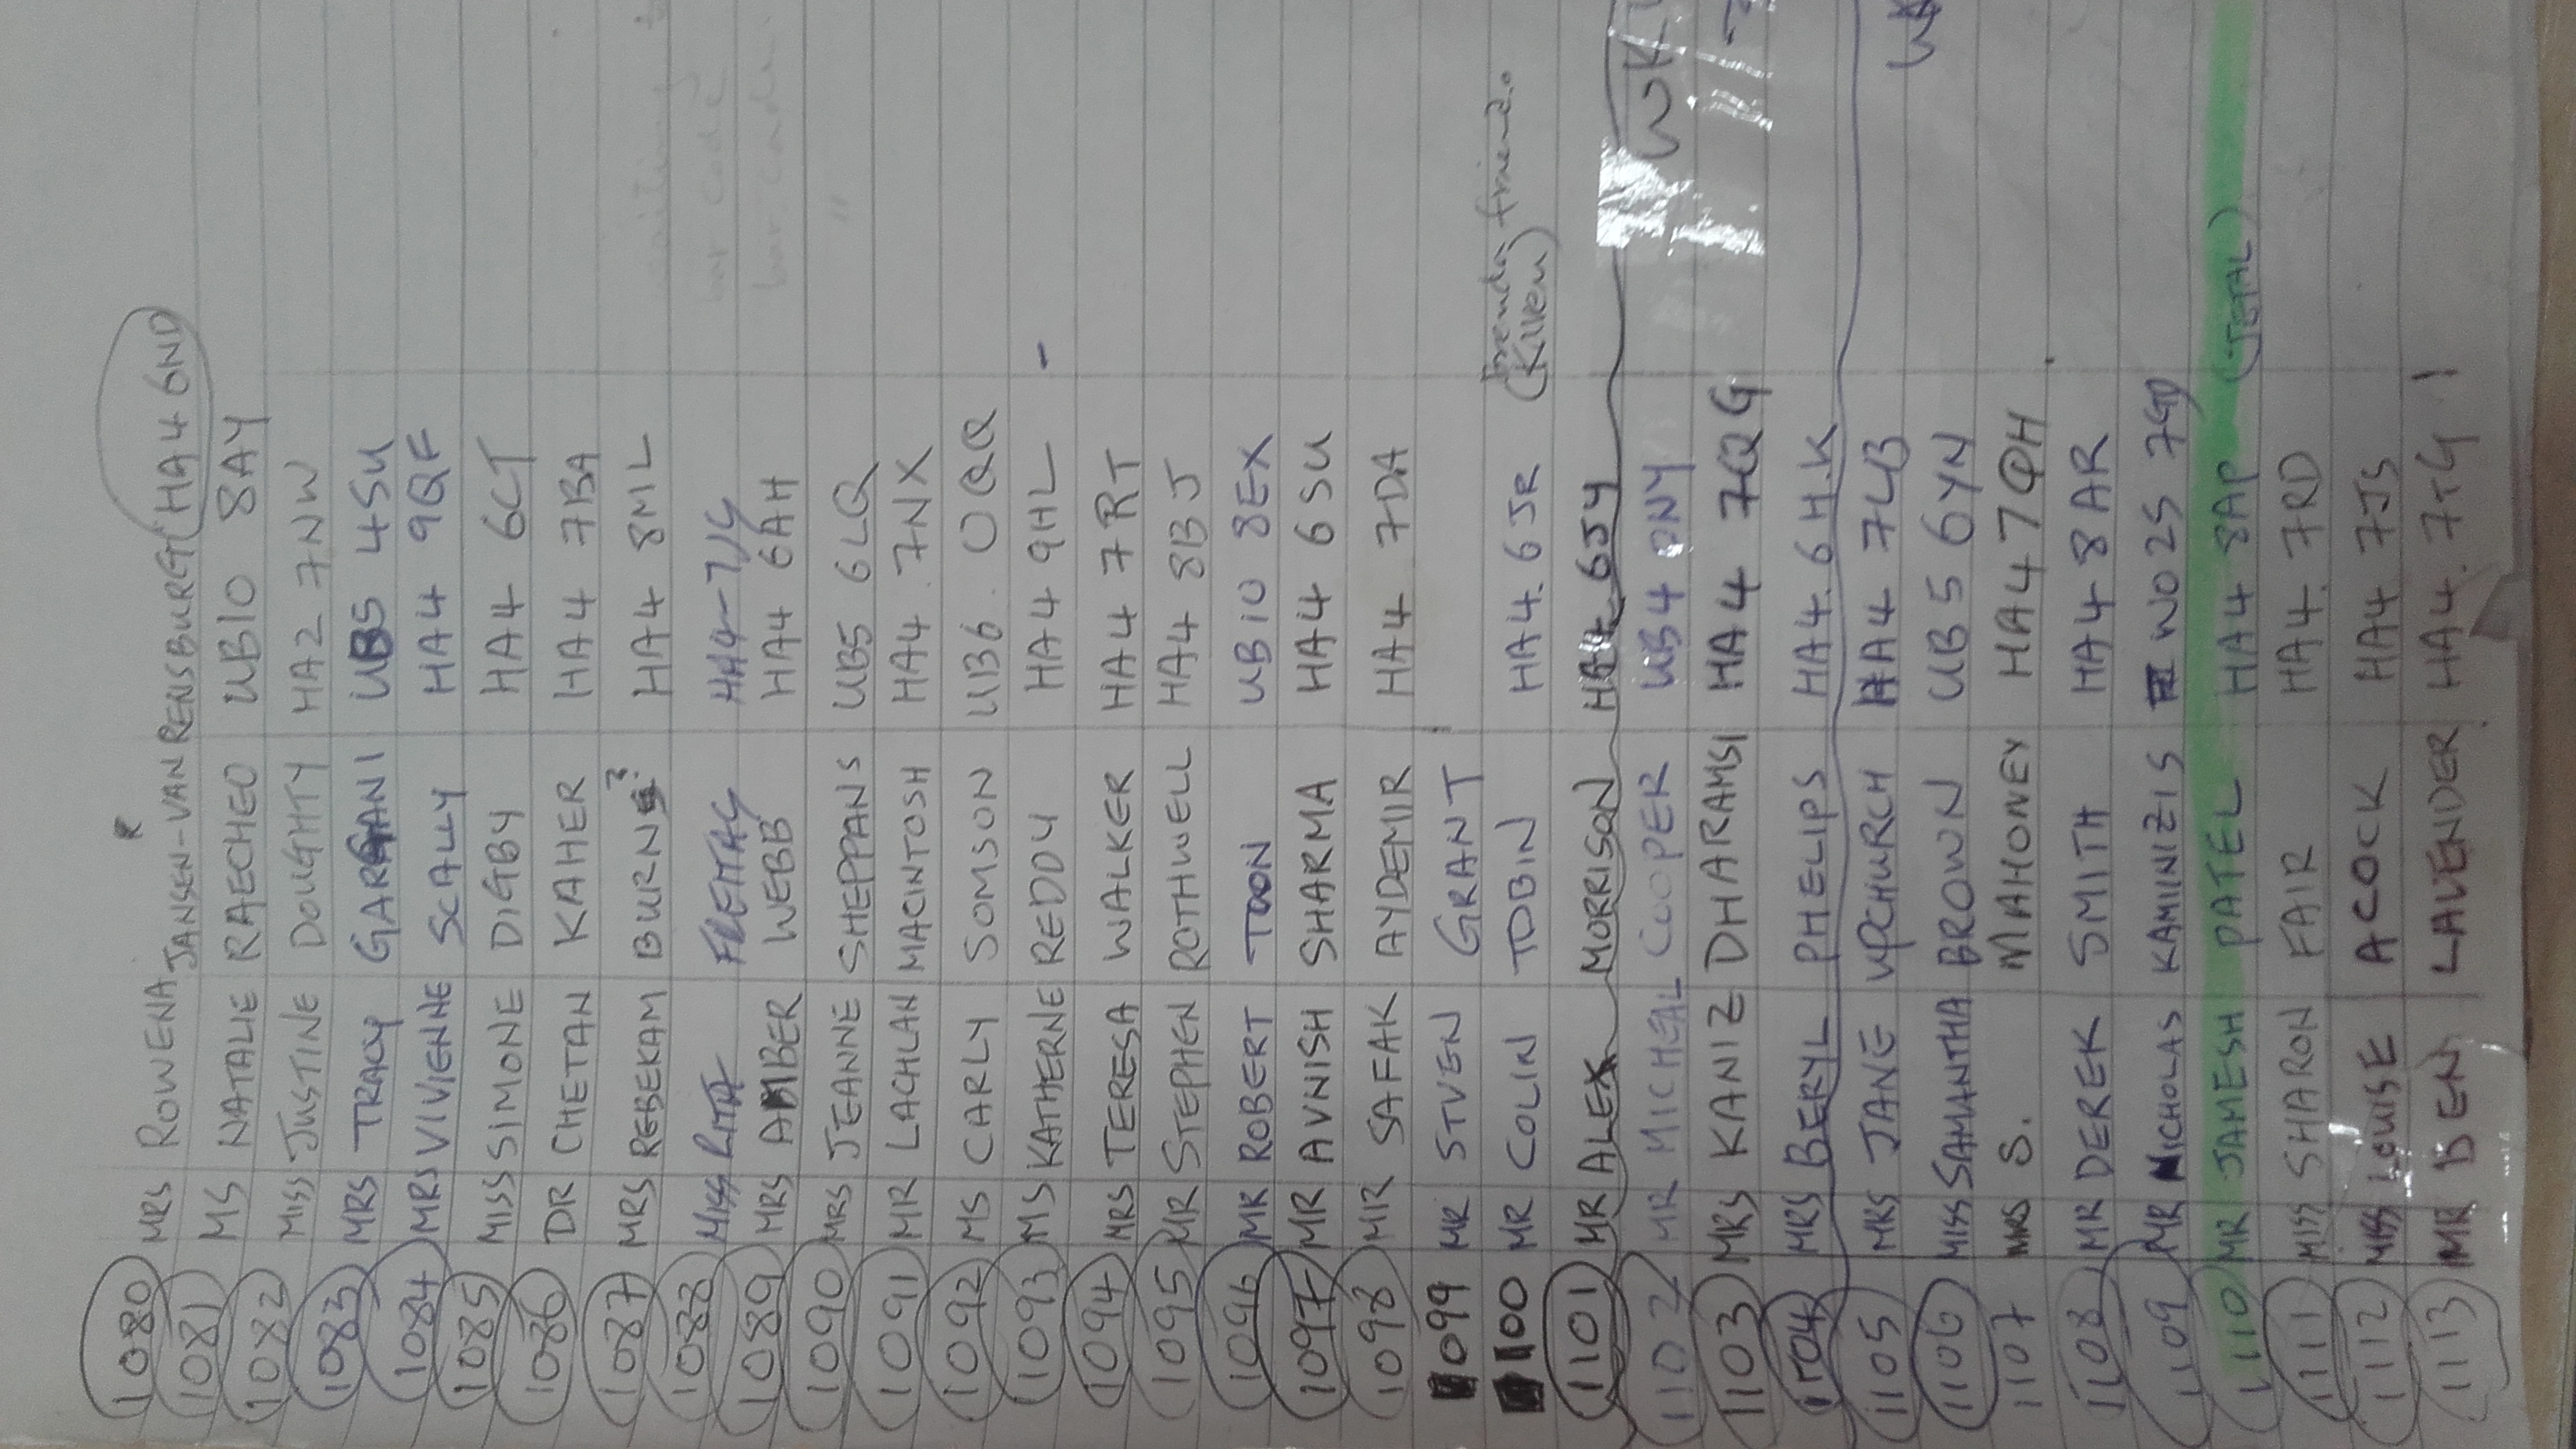 1080 MRS ROWENA JANSEN-VAN RENSBURG HA4 6ND
1081 MS NATALIE RAECHEO UB10 8AY
1082 MISS JUSTINE DOUGHTY HA2 7NW
1083 MRS TRACY GARGANI UB5 4SU
1084 MRS VIVIENNE SCALLY HA4 9QF
1085 MISS SIMONE DIGBY HA4 6CT
1086 DR CHETAN KAHER HA4 7BA
1087 MRS REBEKAM BURNS? HA4 8ML
1088 MISS RITA FREITAS HA4-7JS
1089 MRS AMBER WEBB HA4 6AH
1090 MRS JEANNE SHEPPANS UB5 6LQ
1091 MR LACHLAN MACINTOSH HA4 7NX
1092 MS CARLY SOMSON UB6 0QQ
1093 MS KATHERNE REDDY HA4 9HL -
1094 MRS TERESA WALKER HA4 7RT
1095 MR STEPHEN ROTHWELL HA4 8BJ
1096 MR ROBERT TOON UB10 8EX
1097 MR AVNISH SHARMA HA4 6SU
1098 MR SAFAK AYDEMIR HA4 7DA
1099 MR STVEN GRANT
1100 MR COLIN TOBIN HA4. 6JR
1101 MR ALEX MORRISON HA4 6JY
1102 MR MICHEAL COOPER UB4 0NY
1103 MRS KANIZ DHARAMSI HA4 7QG
1104 MRS BERYL PHELIPS HA4. 6H.K
1105 MRS JANE UPCHURCH HA4 7LB
1106 MISS SAMANTHA BROWN UB5 6YN
1107 MRS S. MAHONEY HA4 7QH
1108 MR DEREK SMITH HA4 8AR
1109 MR NICHOLAS KAMIINIZIS
1110 MR JAMESH PATEL HA4 8AP (JETAL)
1111 MISS SHARON FAIR HA4. 7RD
1112 MISS LOUISE ACOCK HA4. 7JS
1113 MR BEN LAVENDER HA4. 7TG